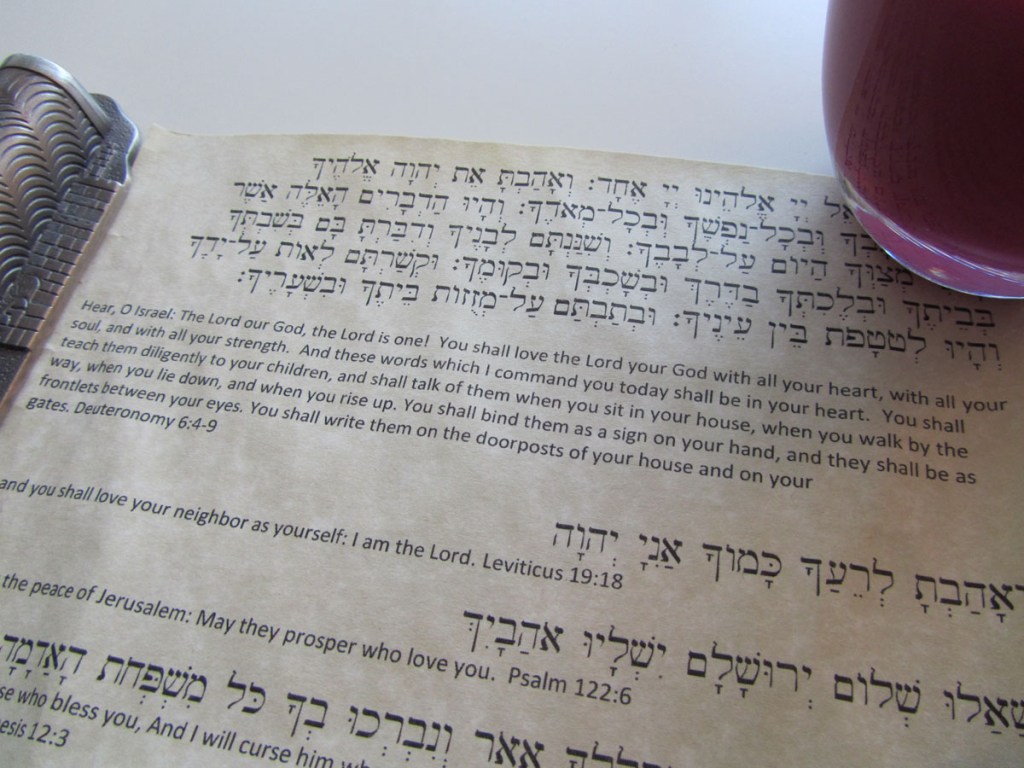 יְיָ אֱלֹהֵינוּ יְיָ אֶחָד: וְאָהַבְתָּ אֵת יְהוָה אֱלֹהֶיךָ
וּבְכָל-נַפְשְׁךָ וּבְכָל-מְאֹדֶךָ: וְהָיוּ הַדְּבָרִים הָאֵלֶּה אֲשֶׁר
מְצַוְּךָ הַיּוֹם עַל-לְבָבֶךָ: וְשִׁנַּנְתָּם לְבָנֶיךָ וְדִבַּרְתָּ בָּם בְּשִׁבְתְּךָ
בְּבֵיתֶךָ וּבְלֶכְתְּךָ בַדֶּרֶךְ וּבְשָׁכְבְּךָ וּבְקוּמֶךָ: וּקְשַׁרְתָּם לְאוֹת עַל-יָדֶךָ
וְהָיוּ לְטֹטָפֹת בֵּין עֵינֶיךָ: וּכְתַבְתָּם עַל-מְזֻזוֹת בֵּיתֶךָ וּבִשְׁעָרֶיךָ:
Hear, O Israel: The Lord our God, the Lord is one! You shall love the Lord your God with all your heart, with all your
soul, and with all your strength. And these words which I command you today shall be in your heart. You shall
teach them diligently to your children, and shall talk of them when you sit in your house, when you walk by the
way, when you lie down, and when you rise up. You shall bind them as a sign on your hand, and they shall be as
frontlets between your eyes. You shall write them on the doorposts of your house and on your
gates. Deuteronomy 6:4-9
וְאָהַבְתָּ לְרֵעֲךָ כָּמוֹךָ אֲנִי יְהוָה
and you shall love your neighbor as yourself: I am the Lord. Leviticus 19:18
שַׁאֲלוּ שְׁלוֹם יְרוּשָׁלִָם יִשְׁלָיוּ אֹהֲבָיִךְ
the peace of Jerusalem: May they prosper who love you. Psalm 122:6
אאר וְנִבְרְכוּ בְךָ כֹּל מִשְׁפְּחֹת הָאֲדָמָה
who bless you, And I will curse him
12:3